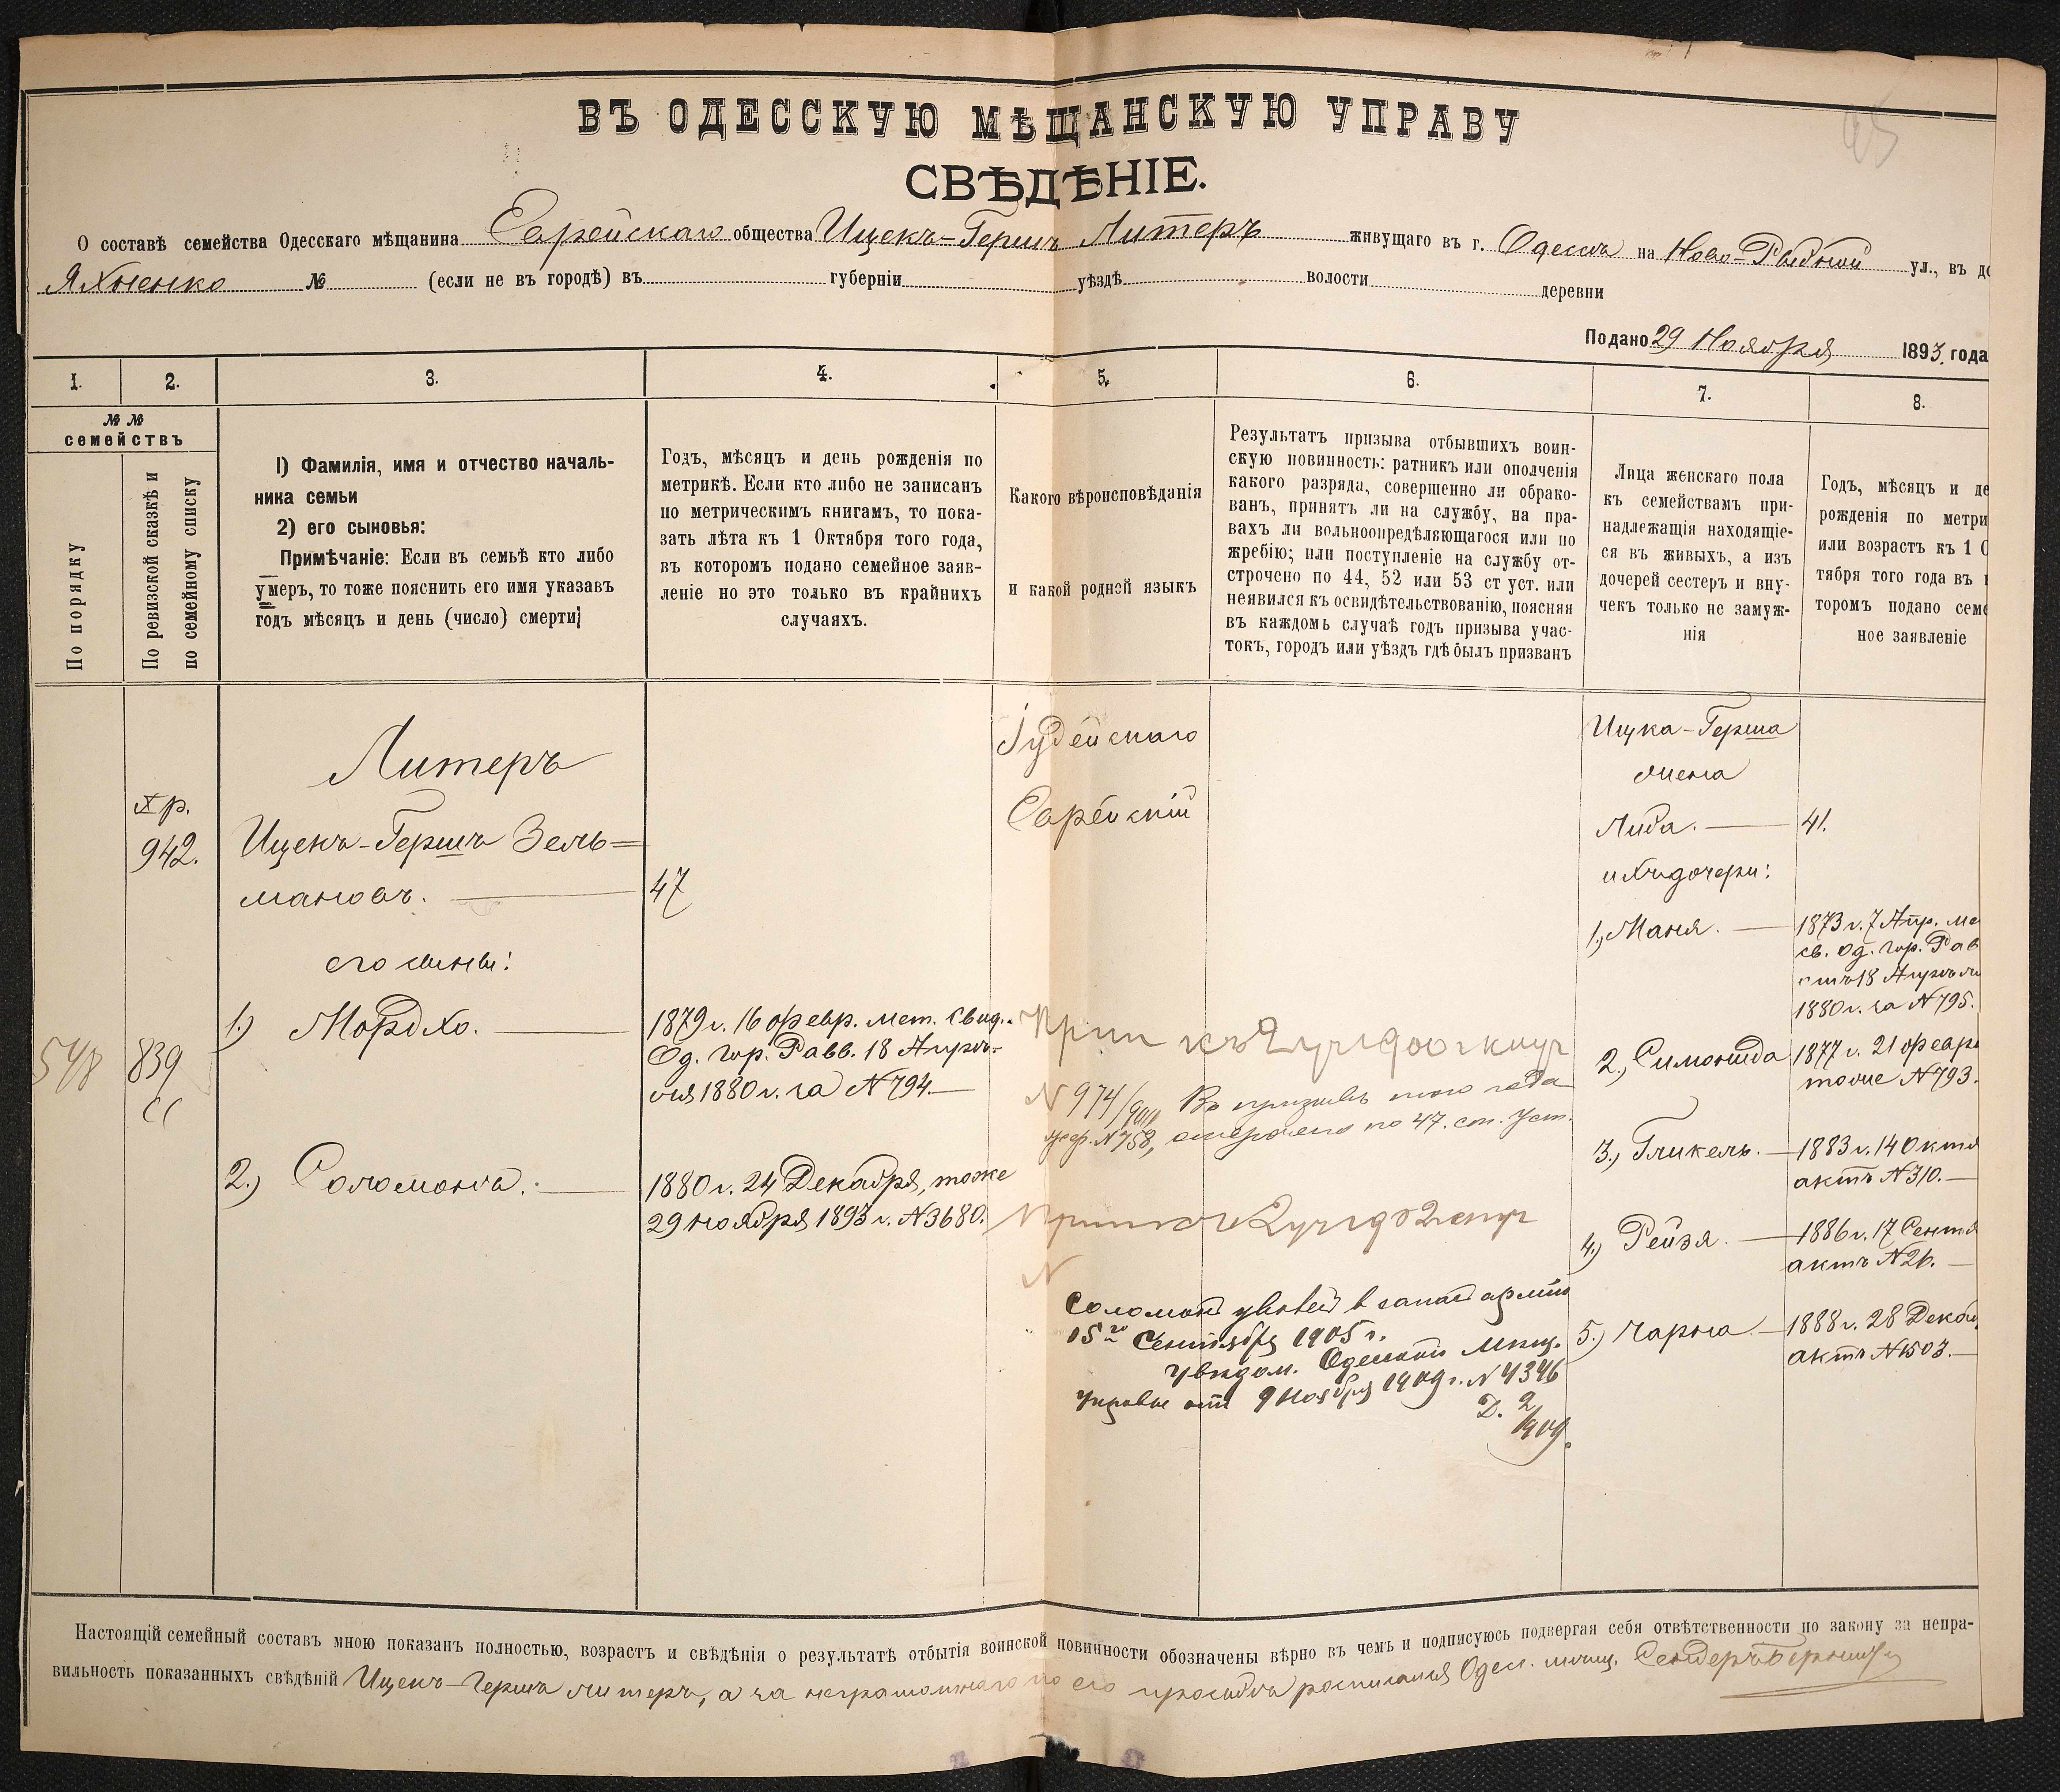 ВЪ ОДЕССКУЮ МѢЩАНСКУЮ УПРАВУ
СВѢДѢНІЕ.
О составѣ семейства Одесскаго мѣщанина Еврейскаго общества Ицекъ-Гершъ Литеръ живущаго въ г. Одессѣ на Ново-Рыбной ул., въ до
Яхненко № (если не въ городѣ) въ губерніи уѣздѣ волости деревни
Подано 29 Ноября 1893 года
1. 2. 3. 4. 5. 6. 7. 8.
№ №
семействъ
По порядку
По ревизской сказкѣ и
по семейному списку
1) Фамилія, имя и отчество началь-
ника семьи
2) его сыновья:
Примѣчаніе: Если въ семьѣ кто либо
умеръ, то тоже пояснить его имя указавъ
годъ мѣсяцъ и день (число) смерти;
Годъ, мѣсяцъ и день рожденія по
метрикѣ. Если кто либо не записанъ
по метрическимъ книгамъ, то пока-
зать лѣта къ 1 Октября того года,
въ которомъ подано семейное заяв-
леніе но это только въ крайнихъ
случаяхъ.
Какого вѣроисповѣданія
и какой родной языкъ
Результатъ призыва отбывшихъ воин-
скую повинность: ратникъ или ополченія
какого разряда, совершенно ли обрако-
ванъ, принятъ ли на службу, на пра-
вахъ ли вольноопредѣляющагося или по
жребію; или поступленіе на службу от-
строчено по 44, 52 или 53 ст уст. или
неявился къ освидѣтельствованію, поясняя
въ каждомъ случаѣ годъ призыва учас-
токъ, городъ или уѣздъ гдѣ былъ призванъ
Лица женскаго пола
къ семействамъ при-
надлежащія находящіе-
ся въ живыхъ, а изъ
дочерей сестеръ и вну-
чекъ только не замуж-
нія
Годъ, мѣсяцъ и де
рожденія по метри
или возрастъ къ 1 О
тября того года въ к
торомъ подано семе
ное заявленіе
548
Хр.
942.
839
Литеръ
Ицекъ-Гершъ Зель=
мановъ.
47
его сыновья:
1.) Мордхо.
1879 г. 16 февр. Мет. Свид.
Од. гор. Равв. 18 Апрѣ-
ля 1880 г. за № 794.
2.) Соломонъ.
1880 г. 24 Декабря, тоже
29 ноября 1893 г. № 3680.
Іудейскаго
Еврейскій
№ 974/900 Въ призывъ того года
жер. № 758, отсрочено по 47. ст. Уст.
№
Соломон уволен в запас арміи
15го Сентября 1905 г.
Увѣдом. Одесской Мѣщ.
Управы отъ 9 Ноября 1909 г. № 4346
Д. 2/909.
Ицка-Герша
жена
Либа. 41.
ихъ дочери:
1, Маня.
1873 г. 7 Апр. ме
св. Од. гор. Рав
отъ 18 Апрѣля
1880 г. за № 795.
2,
1877 г. 21 февра
тоже № 793.
3.) Гликель.
1883 г. 14 Октя
актъ № 310.
4.) Рейзя.
1886 г. 17 Сентя
актъ № 26.
5.) Чарна
1888 г. 28 Декаб
актъ № 1503.
Настоящій семейный составъ мною показанъ полностью, возрастъ и свѣдѣнія о результатѣ отбытія воинской повинности обозначены вѣрно въ чемъ и подписуюсь подвергая себя отвѣтственности по закону за непра-
вильность показанныхъ свѣдѣній Ицекъ-Гершъ Литеръ, а за неграмотнаго по его просьбѣ росписался Одес. мѣщ. Сендеръ